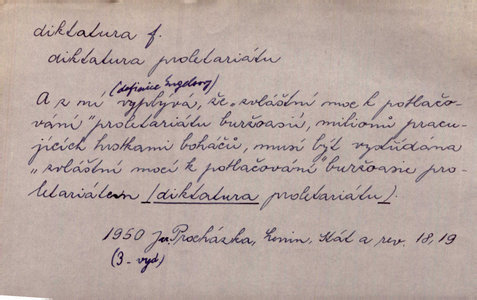 diktatura f.
diktatura proletariátu
(definice Engelsovy)
A z ní vyplývá, že „zvláštní moc k potlačo-
vání" proletariátu buržoasií, milionů pracu-
jících hrstkami boháčů, musí být vystřídána
„zvláštní mocí k potlačování" buržoasie pro-
letariátem (diktatura proletariátu).
1950 Procházka, Lenin, Stát a rev. 18, 19
(3. vyd)